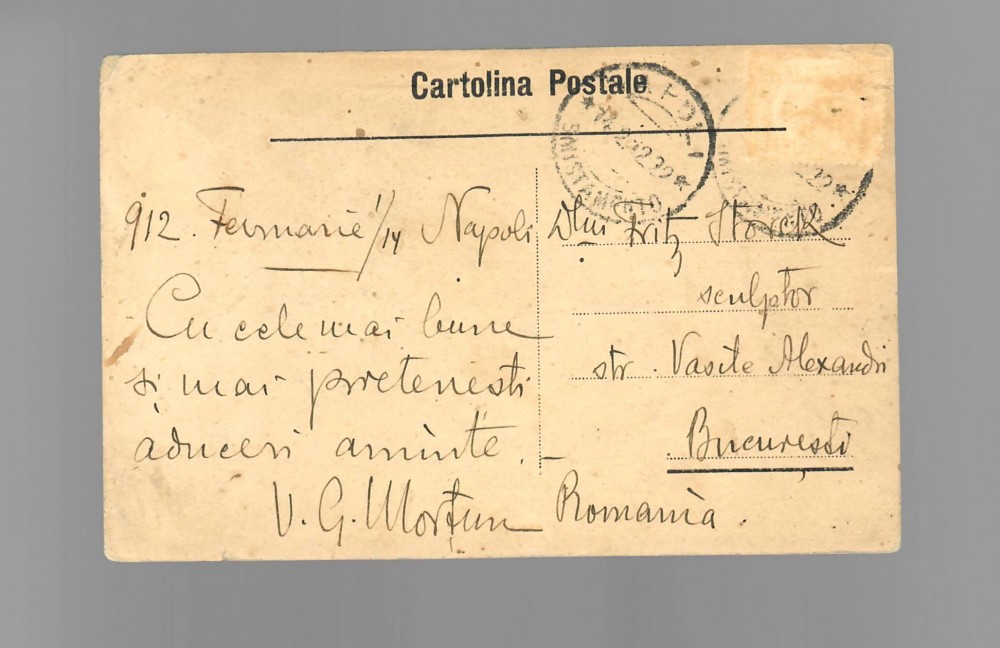 Cartolina Postale
NAPOLI
912. Fevruarie 1/14 Napoli
Cu cele mai bune
și mai prietenești
aduceri aminte. –
V. G. Morțun
Dlui Fritz Storck
sculptor
str. Vasile Alexandri
București
Romania.